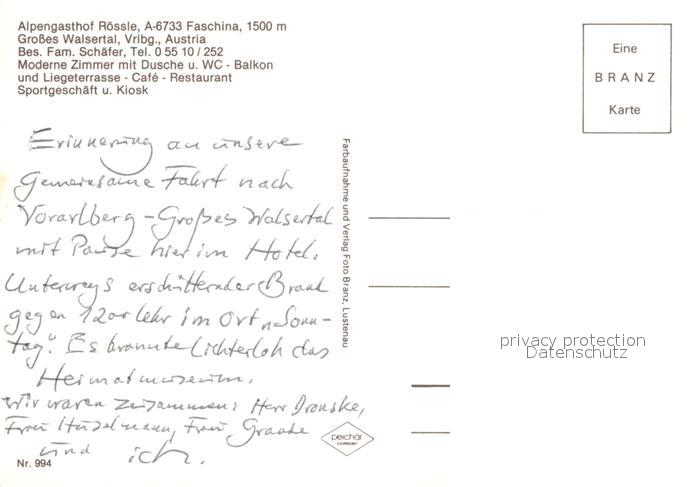 Alpengasthof Rössle, A-6733 Faschina, 1500 m
Großes Walsertal, Vrlbg., Austria
Bes. Fam. Schäfer, Tel. 0 55 10 / 252
Moderne Zimmer mit Dusche u. WC - Balkon
und Liegeterrasse - Café - Restaurant
Sportgeschäft u. Kiosk
Eine
BRANZ
Karte
Erinnerung an unsere
gemeinsame Fahrt nach
Vorarlberg - Großes Walsertal
mit Pause hier im Hotel.
Unterwegs erschütternder Brand
gegen 12 00 Uhr im Ort „Sonn-
tag". Es brannte lichterloh das
Heimatmuseum.
Wir waren zusammen: Herr
Frau Frau
und ich.
Farbaufnahme und Verlag Foto Branz, Lustenau
privacy protection
Datenschutz
peichär
Nr. 994